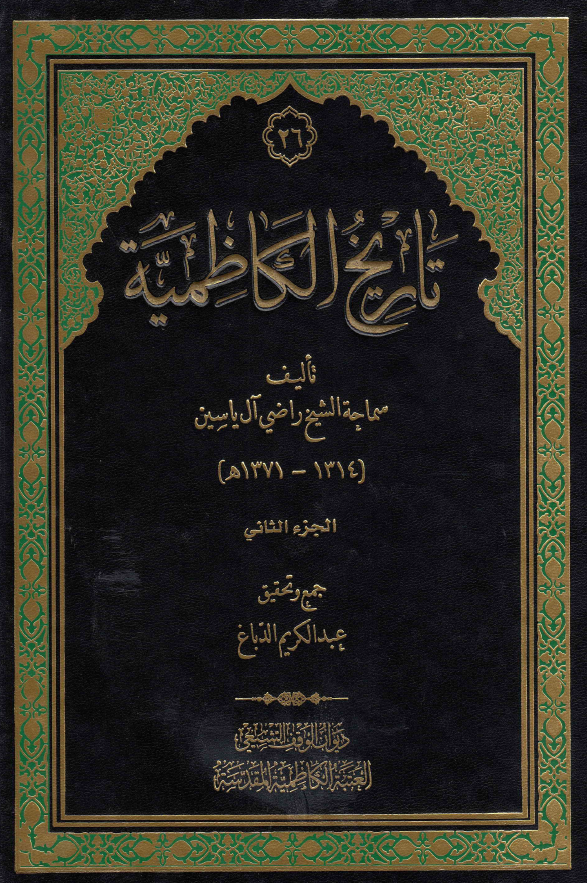 ٢٦
تَارِيْخُ الكَاظِمِيَّة
تأليف
سماحة الشيخ راضي آل ياسين
(١٣١٤ – ١٣٧١هـ)
الجزء الثاني
جمع وتحقيق
عبد الكريم الدباغ
ديوان الوقف الشيعي
العتبة الكاظمية المقدسة